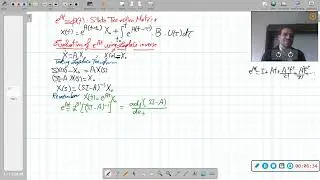 e^At = φ(t): State Transition Matrix
x(t) = e^A(t-t₀) X₀ + ∫ e^A(t-τ) B·U(τ)dτ
Evaluation of e^At using Laplace inverse
Ẋ = AX X(0) = X₀
Taking Laplace Transform
SX(s) - X₀ = A X(s)
(SI-A) X(s) = X₀
X(s) = (SI-A)⁻¹ X₀
Remember x(t) = e^At X₀
e^At = L⁻¹[(SI-A)⁻¹] = adj(SI-A)
det
e^At = I + At + A²t²/2! + A³t³/3! ...
00:06:34